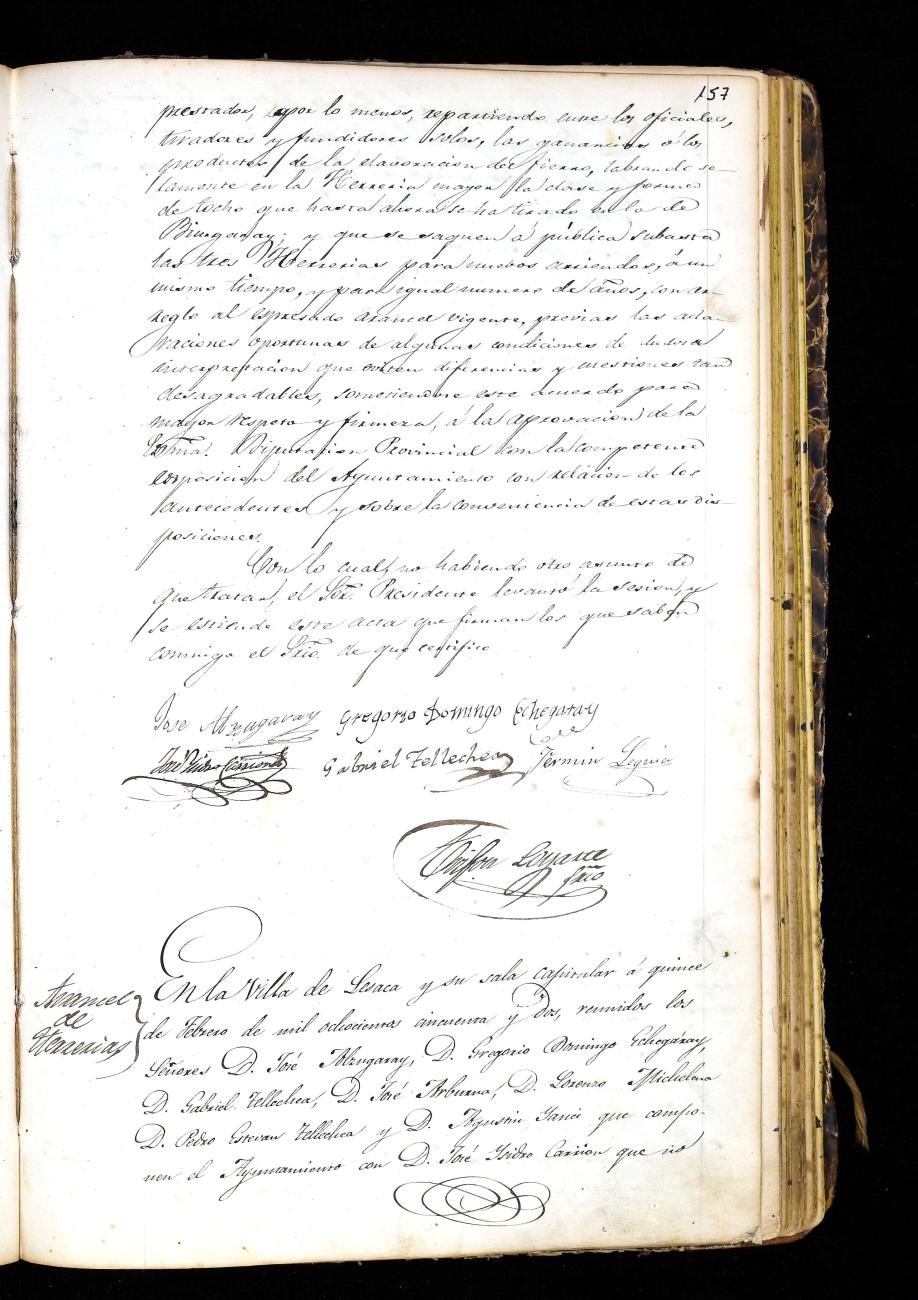 157
prestados, y por lo menos, repartiendo entre los oficiales,
tiradores y fundidores solos, las ganancias ó los
productos de la elavoracion del fierro, labrando so-
lamente en la Herreria mayor la clase y forma
de tocho que hasta ahora se ha tirado en la de
y que se saquen á pública subasta
las tres Herrerias para nuebos arriendos, á un
mismo tiempo, y para igual numero de años, con ar-
reglo al espresado arancel vigente, previas las acla-
raciones oportunas de algunas condiciones de dudosa
interpretacion que eviten diferencias y cuestiones tan
desagradables, sometiendose este acuerdo para
mayor respeto y firmeza, á la aprovacion de la
Exma. Diputacion Provincial con la competente
exposicion del Ayuntamiento con relacion de los
antecedentes y sobre la conveniencia de estas dis-
posiciones.
Con lo cual, no habiendo otro asunto de
que tratar, el Sor. Presidente levantó la sesion, y
se estiende este acta que firman los que saben
conmigo el Srio. de que certifico
José Alzugaray Gregorio Domingo Echegaray
José Isidro Carrion Gabriel Tellechea Fermin Leguia
Loyarte
Srio
Arancel
de
Herrerias
En la Villa de Lesaca y su sala capitular á quince
de Febrero de mil ochocientos cincuenta y dos, reunidos los
Señores D. José Alzugaray, D. Gregorio Domingo Echegáray,
D. Gabriel Tellechea, D. José Arburua, D. Lorenzo Michelena
D. Pedro Estevan Tellechea y D. Agustin Sanz que compo-
nen el Ayuntamiento con D. José Isidro Carrion que no